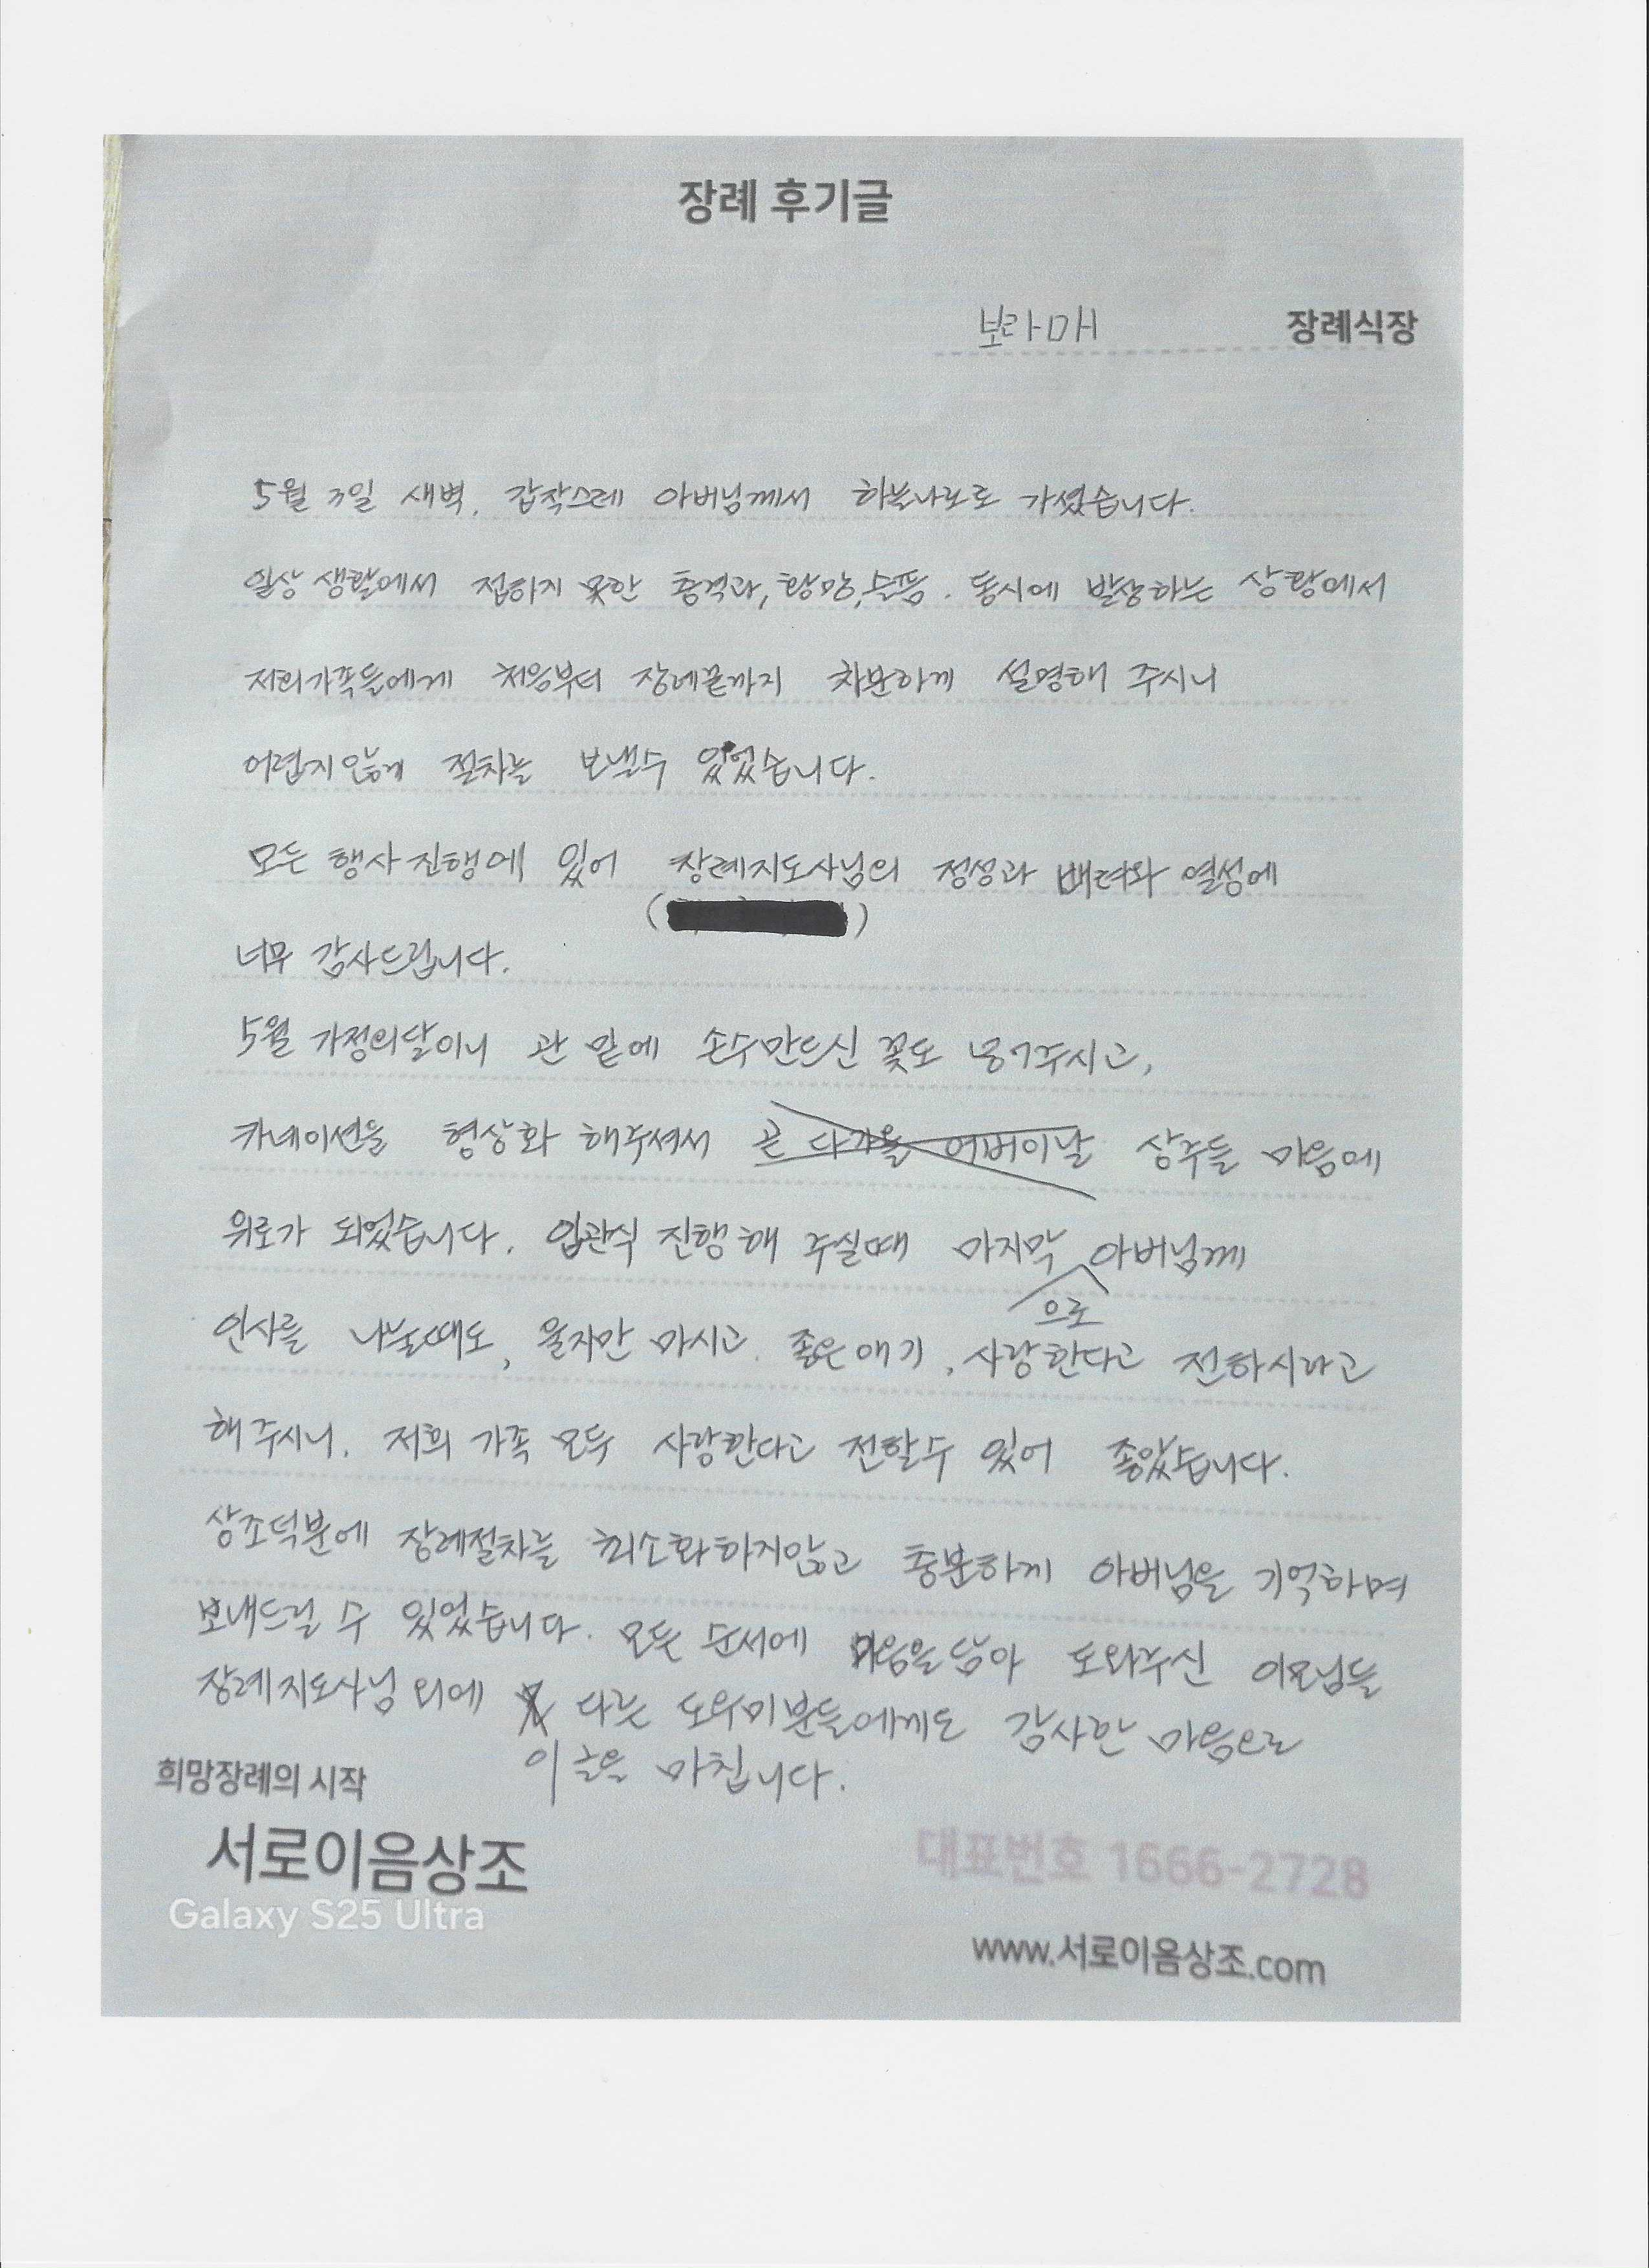 장례 후기글
보라매 장례식장
5월 새벽, 갑작스레 아버님께서 하늘나라로 가셨습니다.
일상 생활에서 접하지 못한 충격과, 황망, 슬픔. 동시에 발생하는 상황에서
저희가족들에게 처음부터 장례끝까지 차분하게 설명해 주시니
어렵지않게 절차를 보낼수 있었습니다.
모든 행사진행에 있어 장례지도사님의 정성과 배려와 열성에
( )
너무 감사드립니다.
5월 가정의달이니 관 밑에 손수만드신 꽃도 놓아주시고,
카네이션을 형상화 해주셔서 곧 다가올 어버이날 상주들 마음에
위로가 되었습니다. 입관식 진행해 주실때 마지막 아버님께
으로
인사를 나눌때도, 울지만 마시고. 좋은얘기, 사랑한다고 전하시라고
해주시니. 저희 가족 모두 사랑한다고 전할수 있어 좋았습니다.
상조덕분에 장례절차를 최소화하지않고 충분하게 아버님을 기억하며
보내드릴 수 있었습니다. 모든 순서에 마음을담아 도와주신 이모님들
장례지도사님 외에 다른 도우미분들에게도 감사한 마음으로
이 글을 마칩니다.
희망장례의 시작
서로이음상조
대표번호 1666-2728
Galaxy S25 Ultra
www.서로이음상조.com